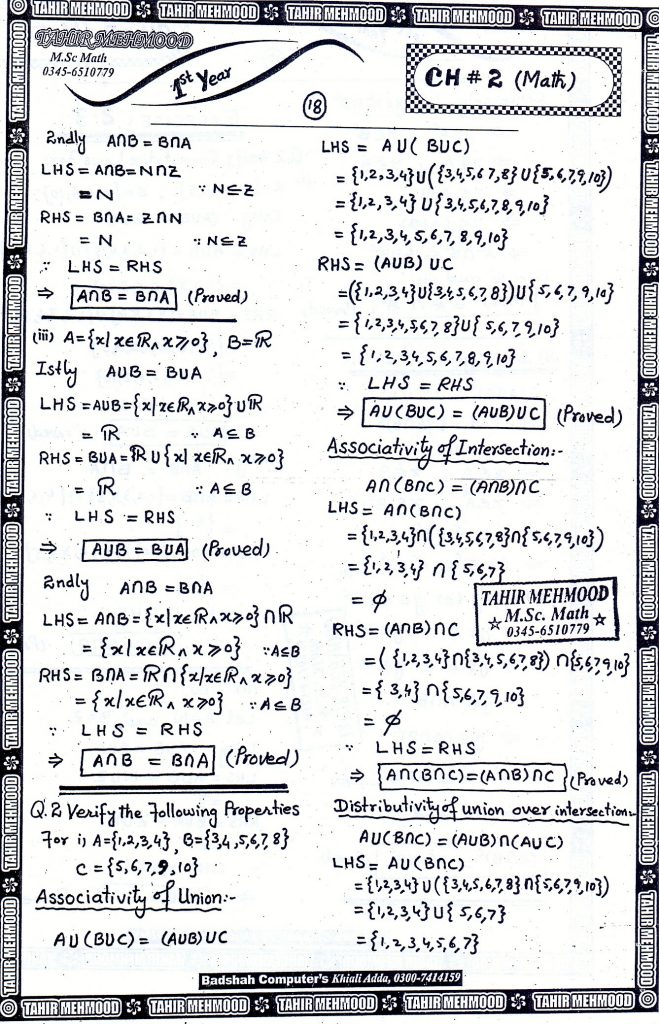 TAHIR MEHMOOD TAHIR MEHMOOD TAHIR MEHMOOD TAHIR MEHMOOD TAHIR MEHMOOD
TAHIR MEHMOOD
M.Sc Math
0345-6510779
1st Year
CH # 2 (Math)
18
2ndly A∩B = B∩A
LHS = A∩B = N∩Z
= N ∵ N⊆Z
RHS = B∩A = Z∩N
= N ∵ N⊆Z
∵ LHS = RHS
⇒ A∩B = B∩A (Proved)
(iii) A={x|x∈ℝ∧x⩾0}, B=ℝ
Istly A∪B = B∪A
LHS = A∪B = {x|x∈ℝ∧x⩾0}∪ℝ
= ℝ ∵ A⊆B
RHS = B∪A = ℝ∪{x|x∈ℝ∧x⩾0}
= ℝ ∵ A⊆B
∵ LHS = RHS
⇒ A∪B = B∪A (Proved)
2ndly A∩B = B∩A
LHS = A∩B = {x|x∈ℝ∧x⩾0}∩ℝ
= {x|x∈ℝ∧x⩾0} ∵ A⊆B
RHS = B∩A = ℝ∩{x|x∈ℝ∧x⩾0}
= {x|x∈ℝ∧x⩾0} ∵ A⊆B
∵ LHS = RHS
⇒ A∩B = B∩A (Proved)
Q.2 Verify the Following Properties
For i) A={1,2,3,4}, B={3,4,5,6,7,8}
C = {5,6,7,9,10}
Associativity of Union:-
A∪(B∪C) = (A∪B)∪C
LHS = A∪(B∪C)
= {1,2,3,4}∪({3,4,5,6,7,8}∪{5,6,7,9,10})
= {1,2,3,4}∪{3,4,5,6,7,8,9,10}
= {1,2,3,4,5,6,7,8,9,10}
RHS = (A∪B)∪C
= ({1,2,3,4}∪{3,4,5,6,7,8})∪{5,6,7,9,10}
= {1,2,3,4,5,6,7,8}∪{5,6,7,9,10}
= {1,2,3,4,5,6,7,8,9,10}
∵ LHS = RHS
⇒ A∪(B∪C) = (A∪B)∪C (Proved)
Associativity of Intersection:-
A∩(B∩C) = (A∩B)∩C
LHS = A∩(B∩C)
= {1,2,3,4}∩({3,4,5,6,7,8}∩{5,6,7,9,10})
= {1,2,3,4}∩{5,6,7}
= φ
TAHIR MEHMOOD
M.Sc. Math
0345-6510779
RHS = (A∩B)∩C
= ({1,2,3,4}∩{3,4,5,6,7,8})∩{5,6,7,9,10}
= {3,4}∩{5,6,7,9,10}
= φ
∵ LHS = RHS
⇒ A∩(B∩C) = (A∩B)∩C (Proved)
Distributivity of union over intersection:-
A∪(B∩C) = (A∪B)∩(A∪C)
LHS = A∪(B∩C)
= {1,2,3,4}∪({3,4,5,6,7,8}∩{5,6,7,9,10})
= {1,2,3,4}∪{5,6,7}
= {1,2,3,4,5,6,7}
Badshah Computer's Khiali Adda, 0300-7414159
TAHIR MEHMOOD TAHIR MEHMOOD TAHIR MEHMOOD TAHIR MEHMOOD TAHIR MEHMOOD
TAHIR MEHMOOD TAHIR MEHMOOD TAHIR MEHMOOD TAHIR MEHMOOD TAHIR MEHMOOD TAHIR MEHMOOD TAHIR MEHMOOD TAHIR MEHMOOD
TAHIR MEHMOOD TAHIR MEHMOOD TAHIR MEHMOOD TAHIR MEHMOOD TAHIR MEHMOOD TAHIR MEHMOOD TAHIR MEHMOOD TAHIR MEHMOOD